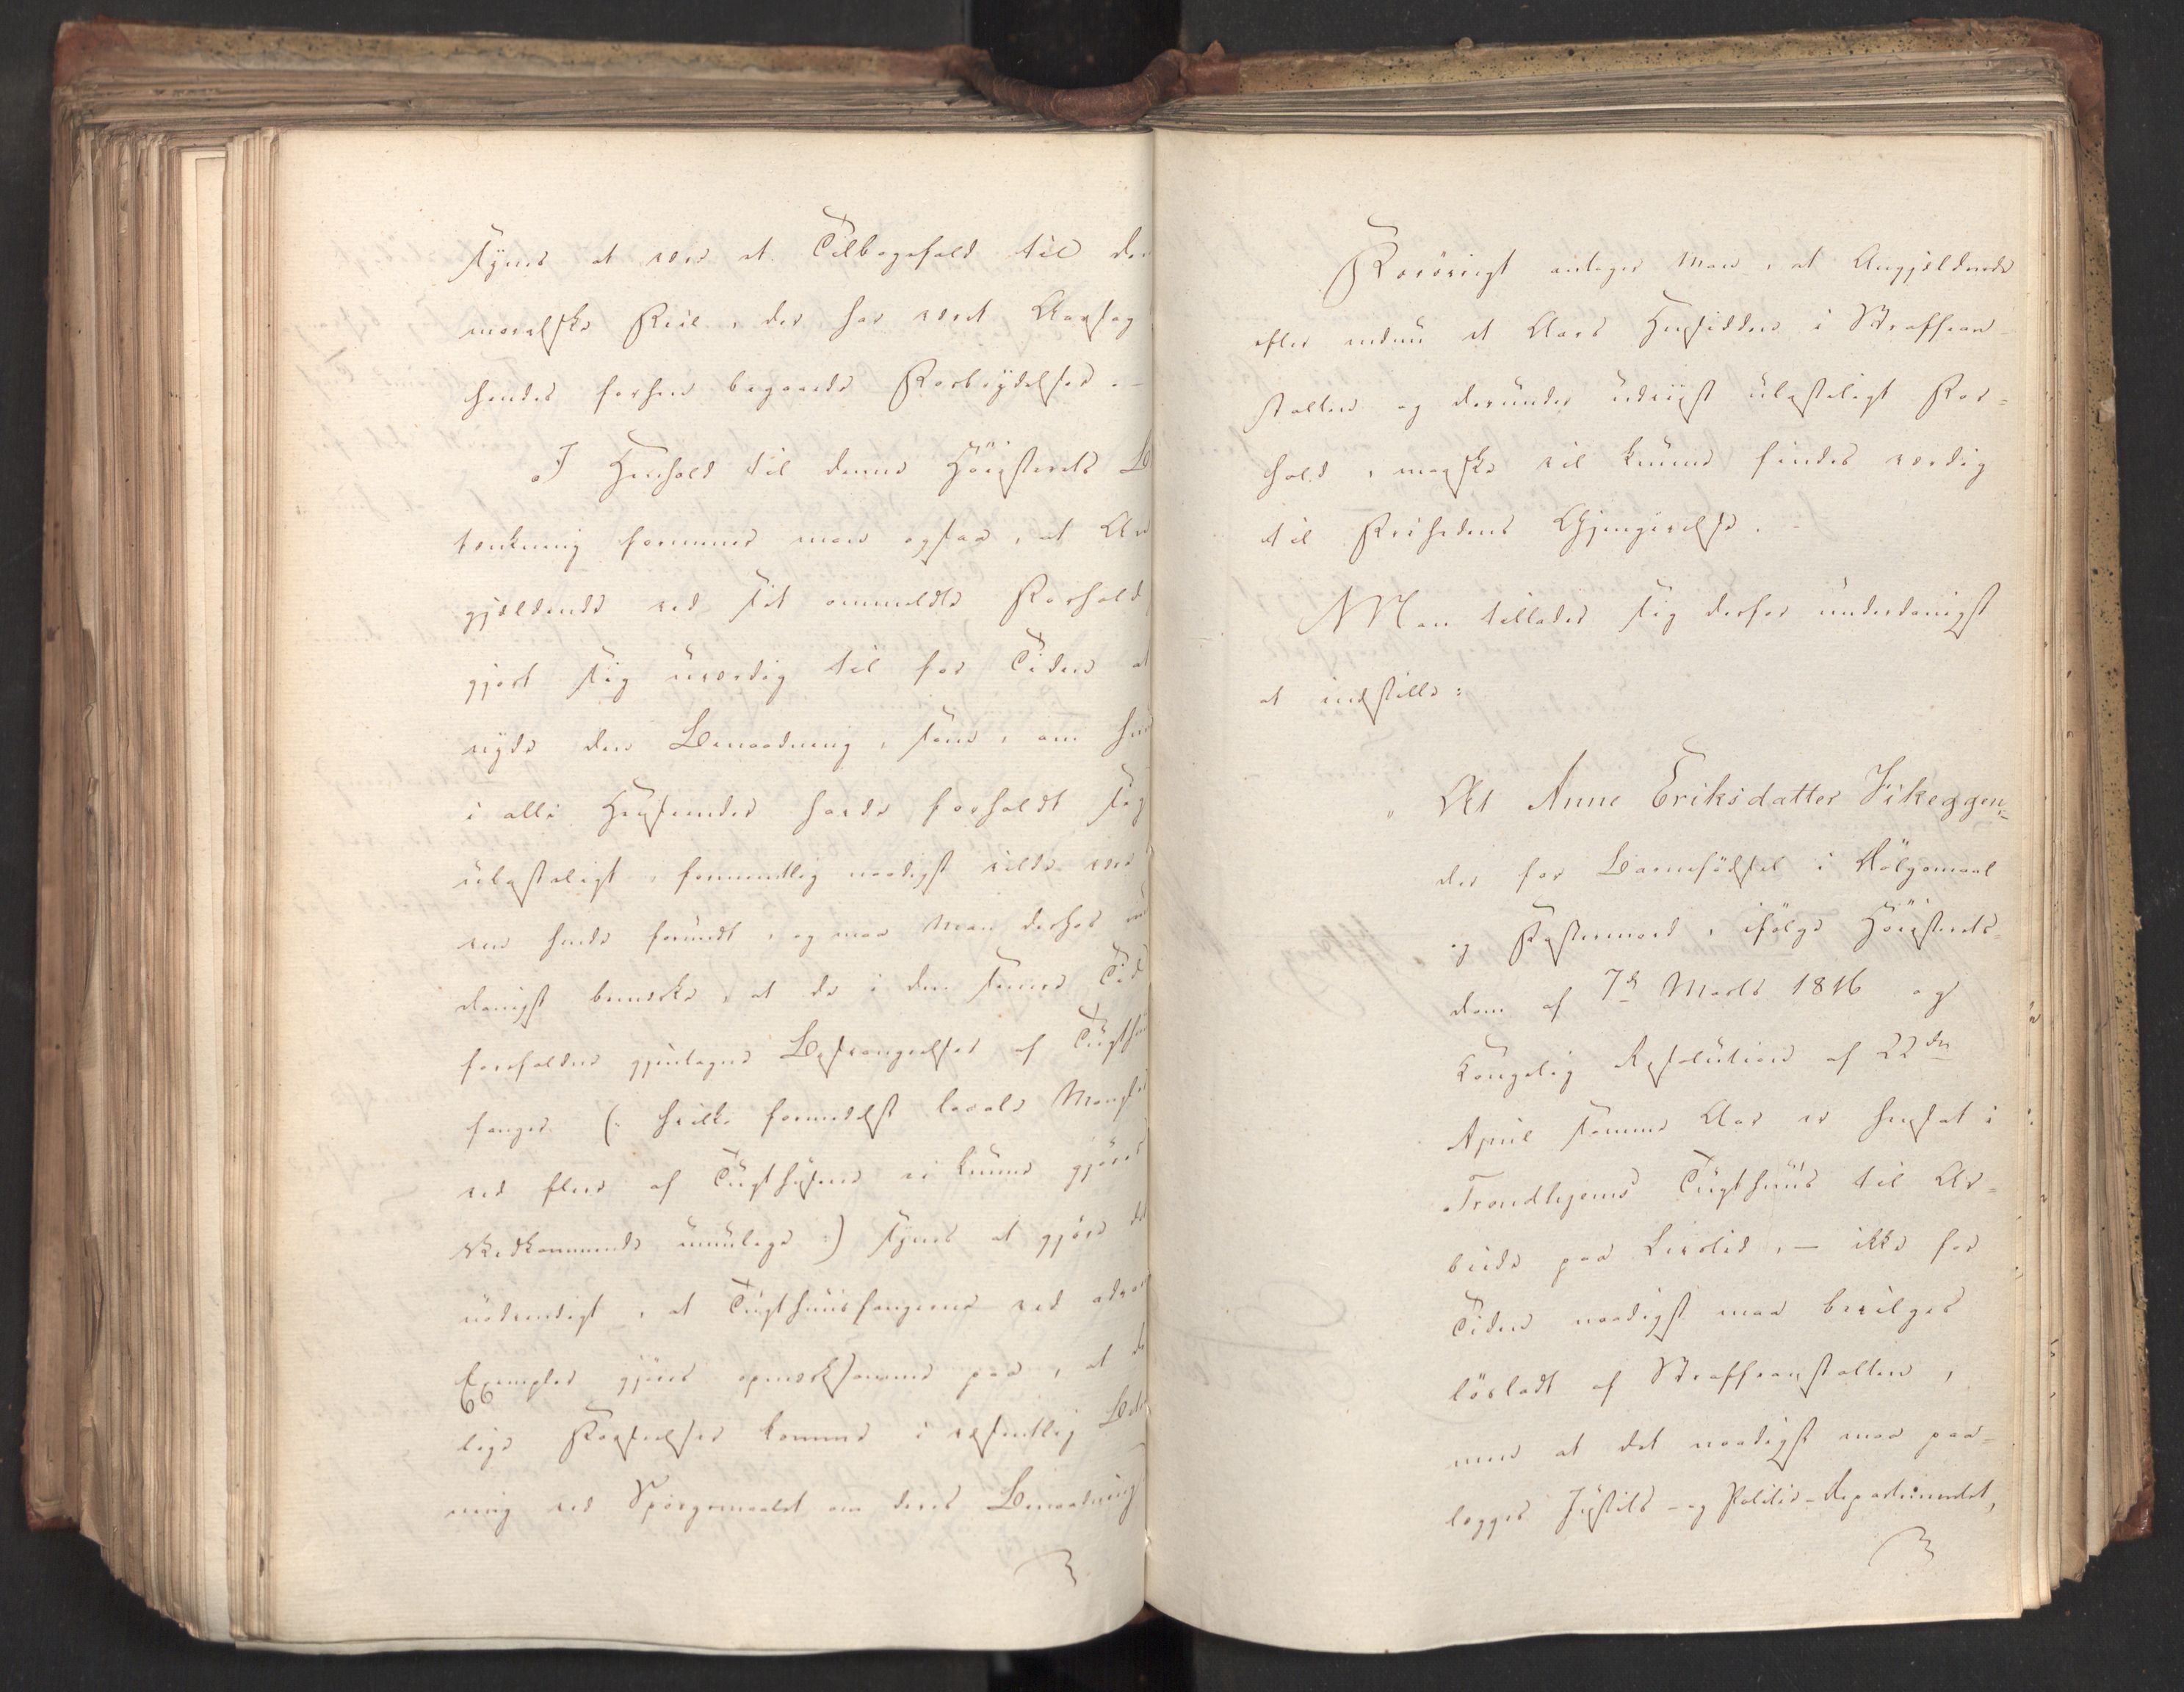 synes at være et Tilbagefald til de
moralske Feil, der har været Aarsag
hendes forhen begaaede Forbrydelser. –
I Henhold til denne Höiesterets B
tænkning formener man ogsaa, at An
gjældende ved sit ommeldte Forhold
gjort sig uværdig til for Tiden at
nyde den Benaadning, som, om hun
i alle Henseender havde forholdt sig
ulasteligt, formentlig naadigst vilde væ
ren hende forundt, og maa man derhos un
danigst bemærke, at de i den senere Tid
forefaldne gjentagne Besvangrelser af Tugthu
fanger (: hvilke formedelst locale Mangler
ved flere af Tugthusene ei kunne gjöres
Vedkommende umulige :) synes at gjöre det
nödvendigt, at Tugthuusfangerne ved advar
Exempler gjöres opmærksomme paa, at de
lige Forseelser komme i væsentlig Betr
ning ved Spörgsmaalet om deres Benaadning
Forövrigt antager man, at Angjældende
efter endnu et Aars Hensidden i Straffean-
stalten og derunder udviist ulasteligt For=
hold, maaske vil kunne findes værdig
til Friheds Gjengivelse. –
Man tillader sig derfor underdanigst
at indstille:
" At Anne Eriksdatter Vikeggen,
der for Barnefödsel i Dölgsmaal
og Fostermord, ifölge Höiesterets-
dom af 7de Marts 1816 og
Kongelig Resolution af 22den
April samme Aar er hensat i
Trondhjems Tugthuus til Ar=
beide paa Livstid, – ikke for
Tiden naadigst maa bevilges
lösladt af Straffeanstalten,
men at det naadigst maa paa-
lægges Justits- og Politie-Departementet,